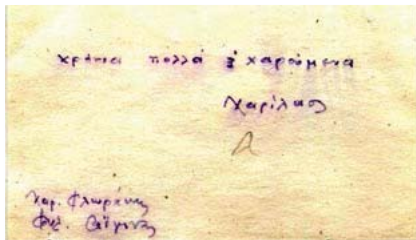 χρόνια πολλά & χαρούμενα
Χαρίλαος
Χαρ. Φλωράκης
Φυλ. Αίγινας